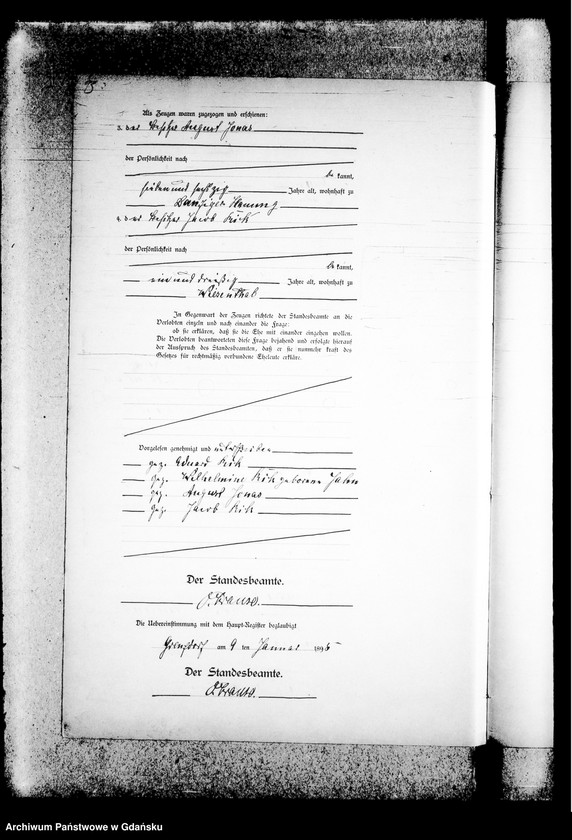 Als Zeugen waren zugezogen und erschienen:
3. der Besitzer August Jonas
der Persönlichkeit nach
be kannt,
sieben und sechzig Jahre alt, wohnhaft zu
Danziger
4. der Besitzer Jacob Kirk
der Persönlichkeit nach
be kannt,
ein und dreißig Jahre alt, wohnhaft zu
Wiesenthal
In Gegenwart der Zeugen richtete der Standesbeamte an die
Verlobten einzeln und nach einander die Frage:
ob sie erklären, daß sie die Ehe mit einander eingehen wollen.
Die Verlobten beantworteten diese Frage bejahend und erfolgte hierauf
der Ausspruch des Standesbeamten, daß er sie nunmehr kraft des
Gesetzes für rechtmäßig verbundene Eheleute erkläre.
Vorgelesen, genehmigt und unterschrieben
gez. Eduard Kirk
gez. Wilhelmine Kirk geborene
gez. August Jonas
gez. Jacob Kirk
Der Standesbeamte.
Die Uebereinstimmung mit dem Haupt-Register beglaubigt
am 9 ten Januar 1895
Der Standesbeamte.
Archiwum Państwowe w Gdańsku